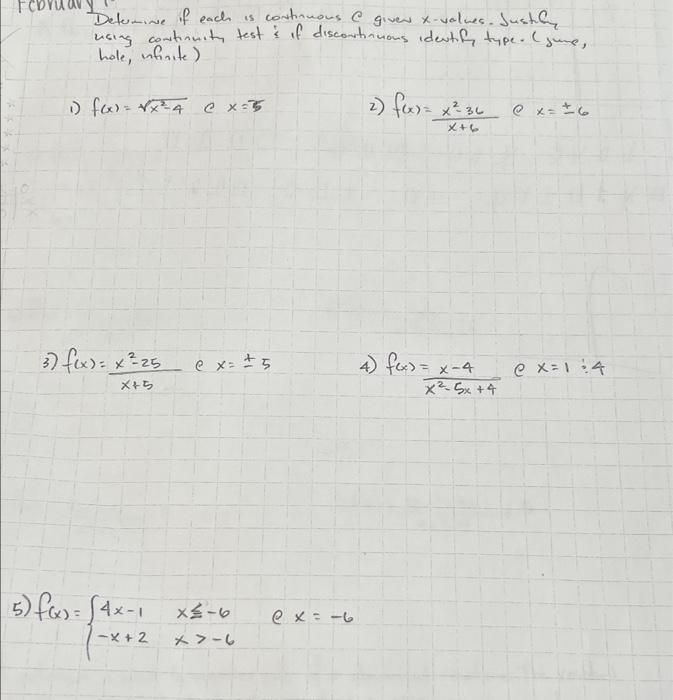 February
Determine if each is continuous @ given x-values. Justify
using continuity test & if discontinuous identify type. (jump,
hole, infinite)
1) f(x) = √x²-4 @ x = 5
2) f(x) = x²-36 / x+6 @ x = ±6
3) f(x) = x²-25 / x+5 @ x = ±5
4) f(x) = x-4 / x²-5x+4 @ x = 1 & 4
5) f(x) = { 4x-1 x ≤ -6 @ x = -6
-x+2 x > -6